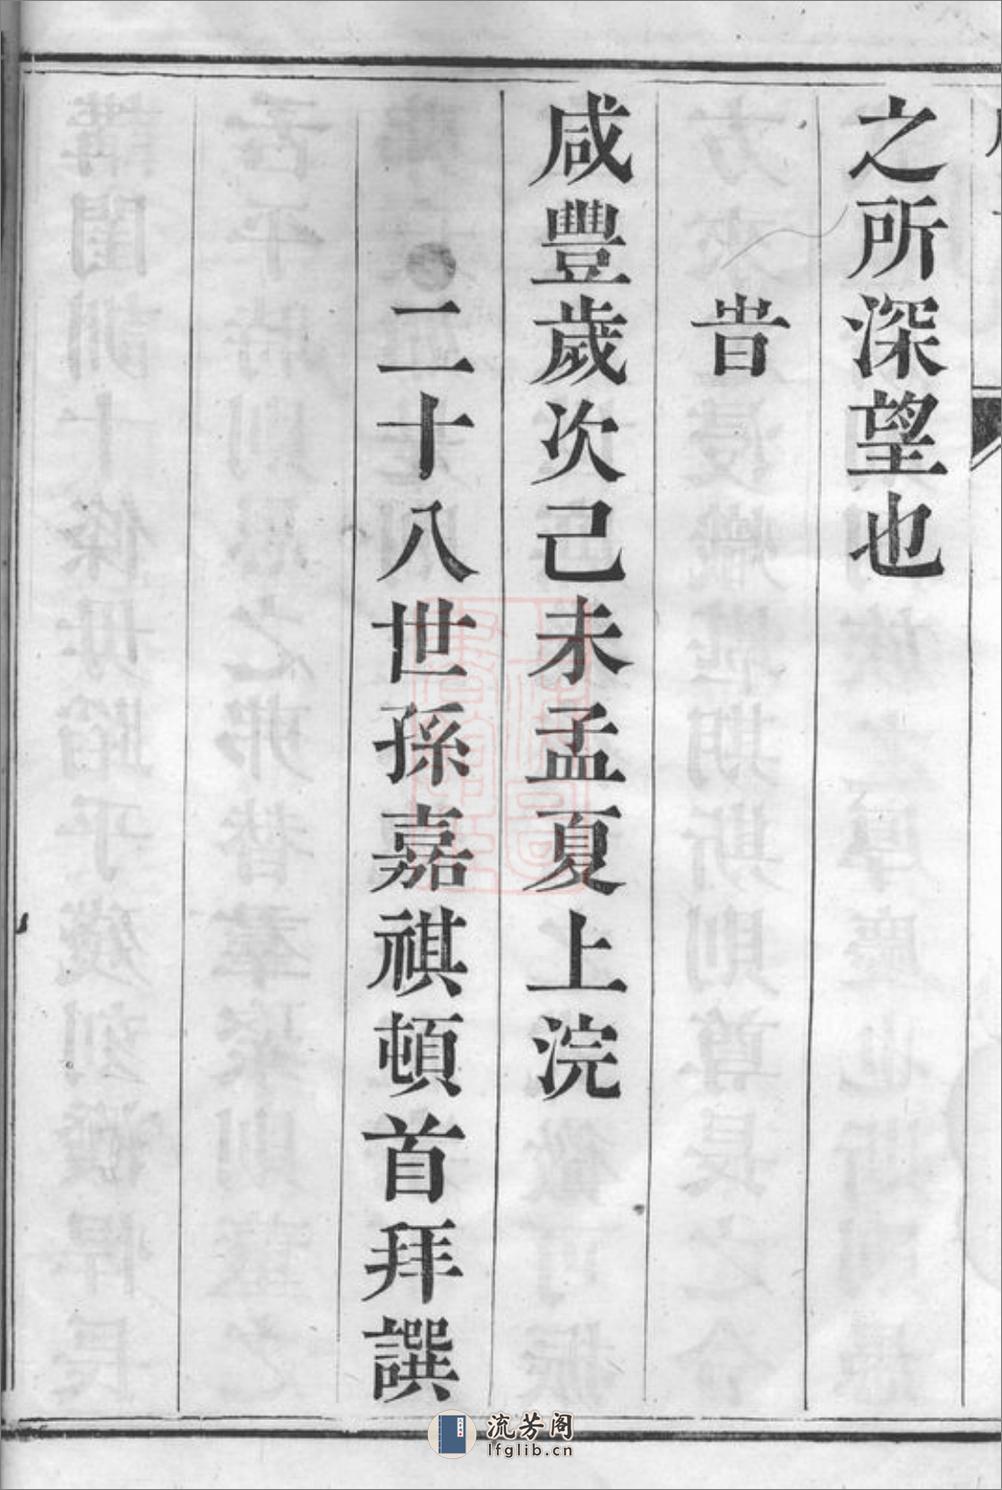 之所深望也
旹
咸豐歲次己未孟夏上浣
二十八世孫嘉祺頓首拜譔
流芳阁
lfglib.cn